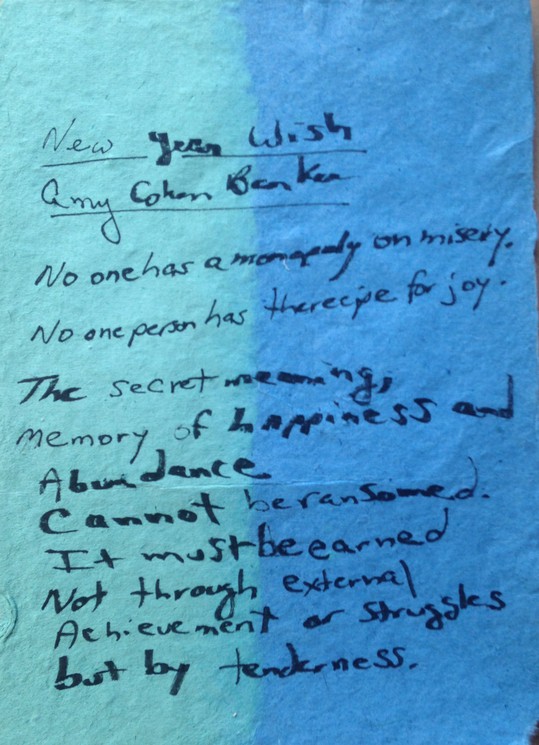 New Year Wish
Amy Cohen Banker
No one has a monopoly on misery.
No one person has the recipe for joy.
The secret meaning,
memory of happiness and
Abundance
Cannot be ransomed.
It must be earned
Not through external
Achievement or struggles
but by tenderness.